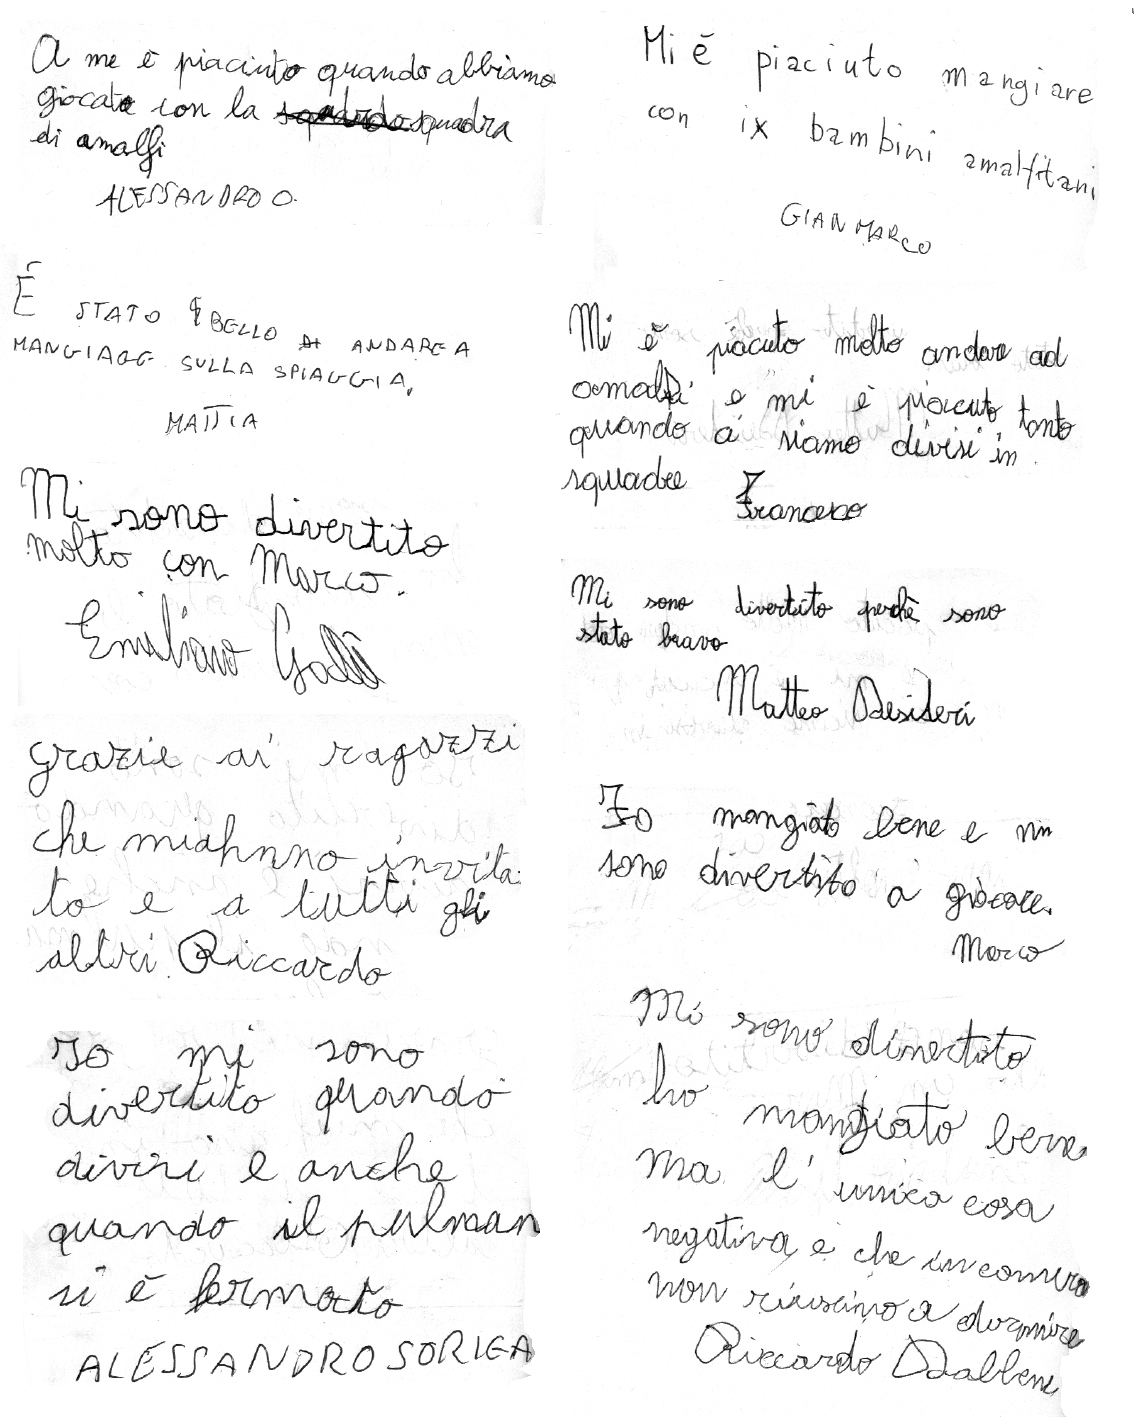 A me è piaciuto quando abbiamo
giocato con la squadra
di amalfi
ALESSANDRO O.
É STATO BELLO DI ANDARE A
SULLA SPIAGGIA.
MATTIA
Mi sono divertito
molto con Marco.
Emiliano
grazie ai ragazzi
che miahnno invita
to e a tutti gli
altri Riccardo
Io mi sono
divertito quando
divisi e anche
quando il pulman
si è fermato
ALESSANDRO SORIGA
Mi è piaciuto mangiare
con ix bambini amalfitani
GIANMARCO
Mi è piacuto molto andare ad
amalfi e mi è piacuto tanto
quando ci siamo divisi in
squadre
Francesco
Mi sono divertito perchè sono
stato bravo
Matteo Desideri
Io mangiato bene e
sono divertito a giocare.
Marco
Mi sono divertito
ho mangiato bene
ma l'unica cosa
negativa è che in camera
non a dormire
Riccardo